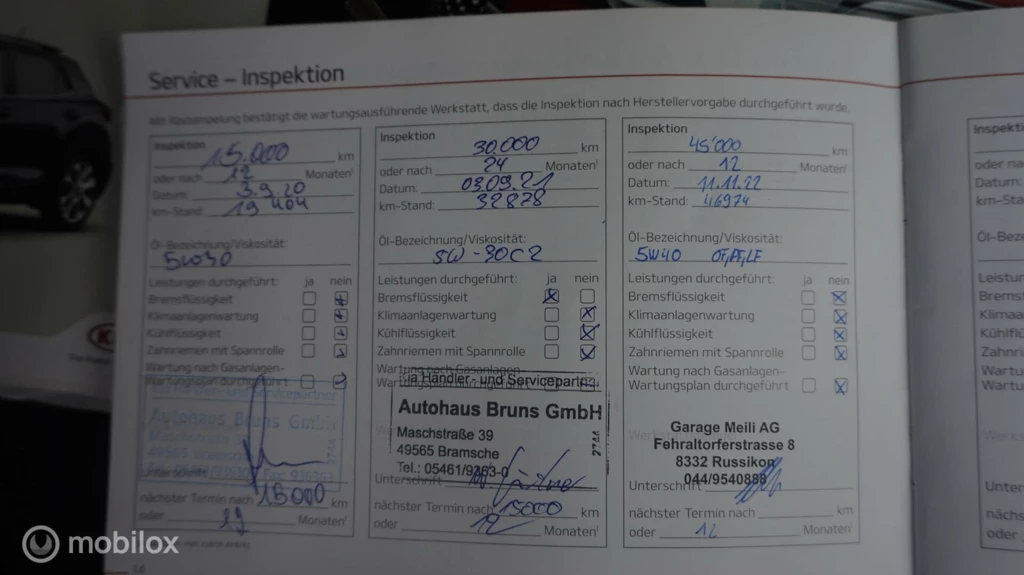 Service – Inspektion
Mit Abstempelung bestätigt die wartungsausführende Werkstatt, dass die Inspektion nach Herstellervorgabe durchgeführt wurde.
Inspektion 15.000 km
oder nach 12 Monaten¹
Datum: 3.9.20
km-Stand: 19 404
Öl-Bezeichnung/Viskosität:
5W30
Leistungen durchgeführt: ja nein
Bremsflüssigkeit
Klimaanlagenwartung
Kühlflüssigkeit
Zahnriemen mit Spannrolle
Wartung nach Gasanlagen-
Wartungsplan durchgeführt
Autohaus Bruns GmbH
Maschstraße 39
49565 Bramsche
Unterschrift
nächster Termin nach 15000 km
oder Monaten¹
Inspektion 30.000 km
oder nach 24 Monaten¹
Datum: 03.09.21
km-Stand: 32878
Öl-Bezeichnung/Viskosität:
5W-30C2
Leistungen durchgeführt: ja nein
Bremsflüssigkeit
Klimaanlagenwartung
Kühlflüssigkeit
Zahnriemen mit Spannrolle
Wartung nach Gasanlagen-
Kia Händler- und Servicepartner
Autohaus Bruns GmbH
Maschstraße 39
49565 Bramsche
Tel.: 05461/9363-0
2744
Unterschrift
nächster Termin nach 15000 km
oder 12 Monaten¹
Inspektion 45'000 km
oder nach 12 Monaten¹
Datum: 11.11.22
km-Stand: 46974
Öl-Bezeichnung/Viskosität:
5W40 OF,PF,LF
Leistungen durchgeführt: ja nein
Bremsflüssigkeit
Klimaanlagenwartung
Kühlflüssigkeit
Zahnriemen mit Spannrolle
Wartung nach Gasanlagen-
Wartungsplan durchgeführt
Garage Meili AG
Fehraltorferstrasse 8
8332 Russikon
044/9540888
Unterschrift
nächster Termin nach km
oder 12 Monaten¹
mobilox